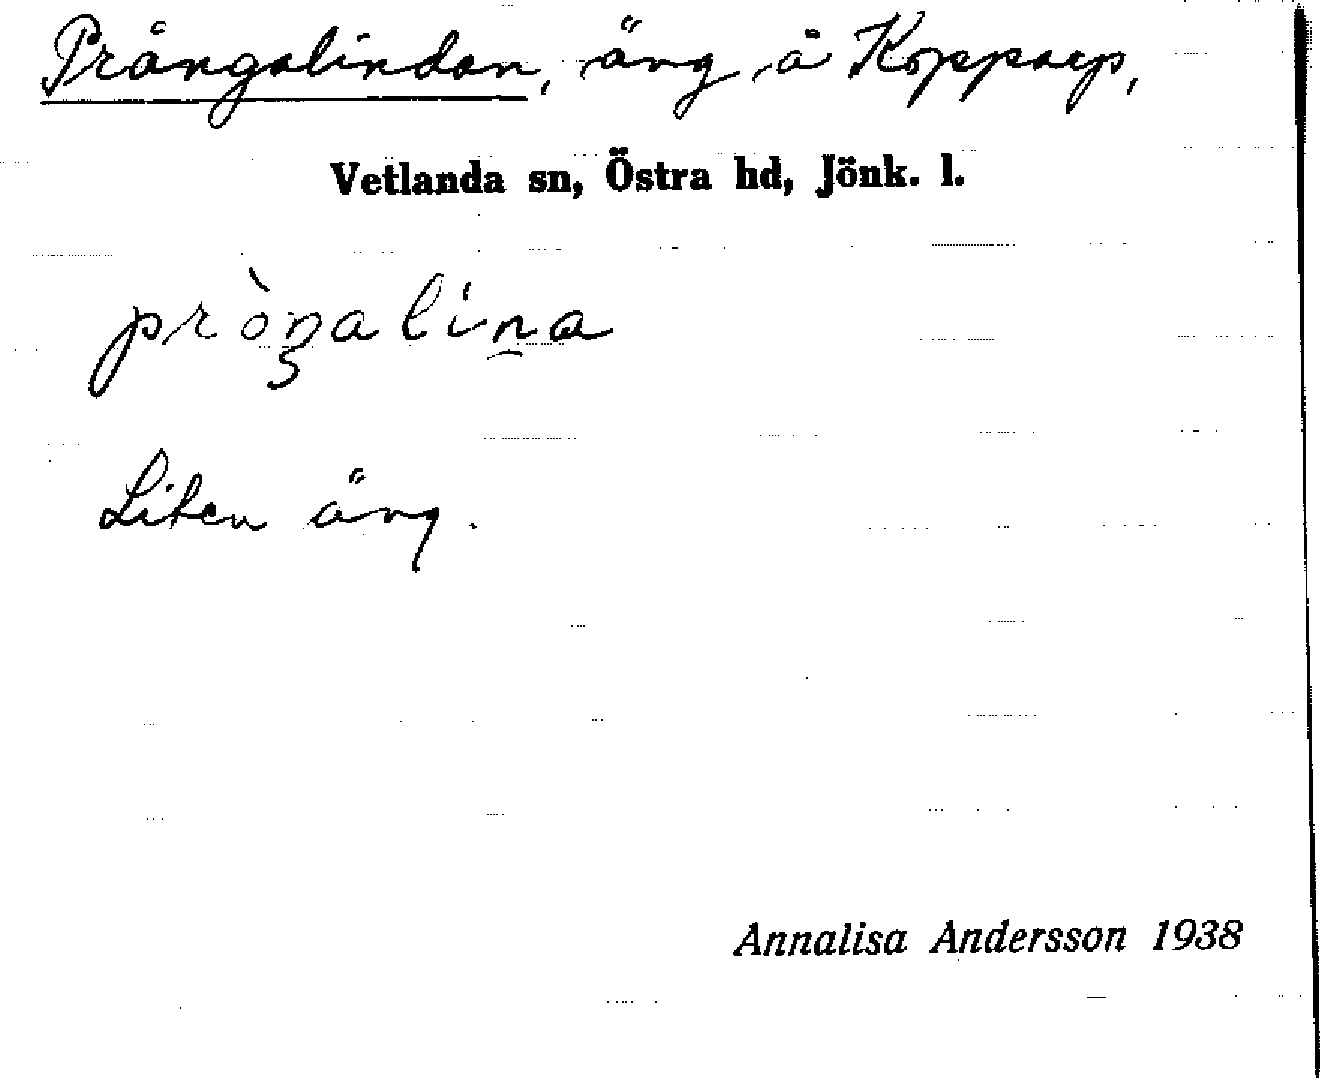 Prångalindan, äng å Kopparp,
Vetlanda sn, Östra hd, Jönk. l.
pròŋalina
Liten äng.
Annalisa Andersson 1938